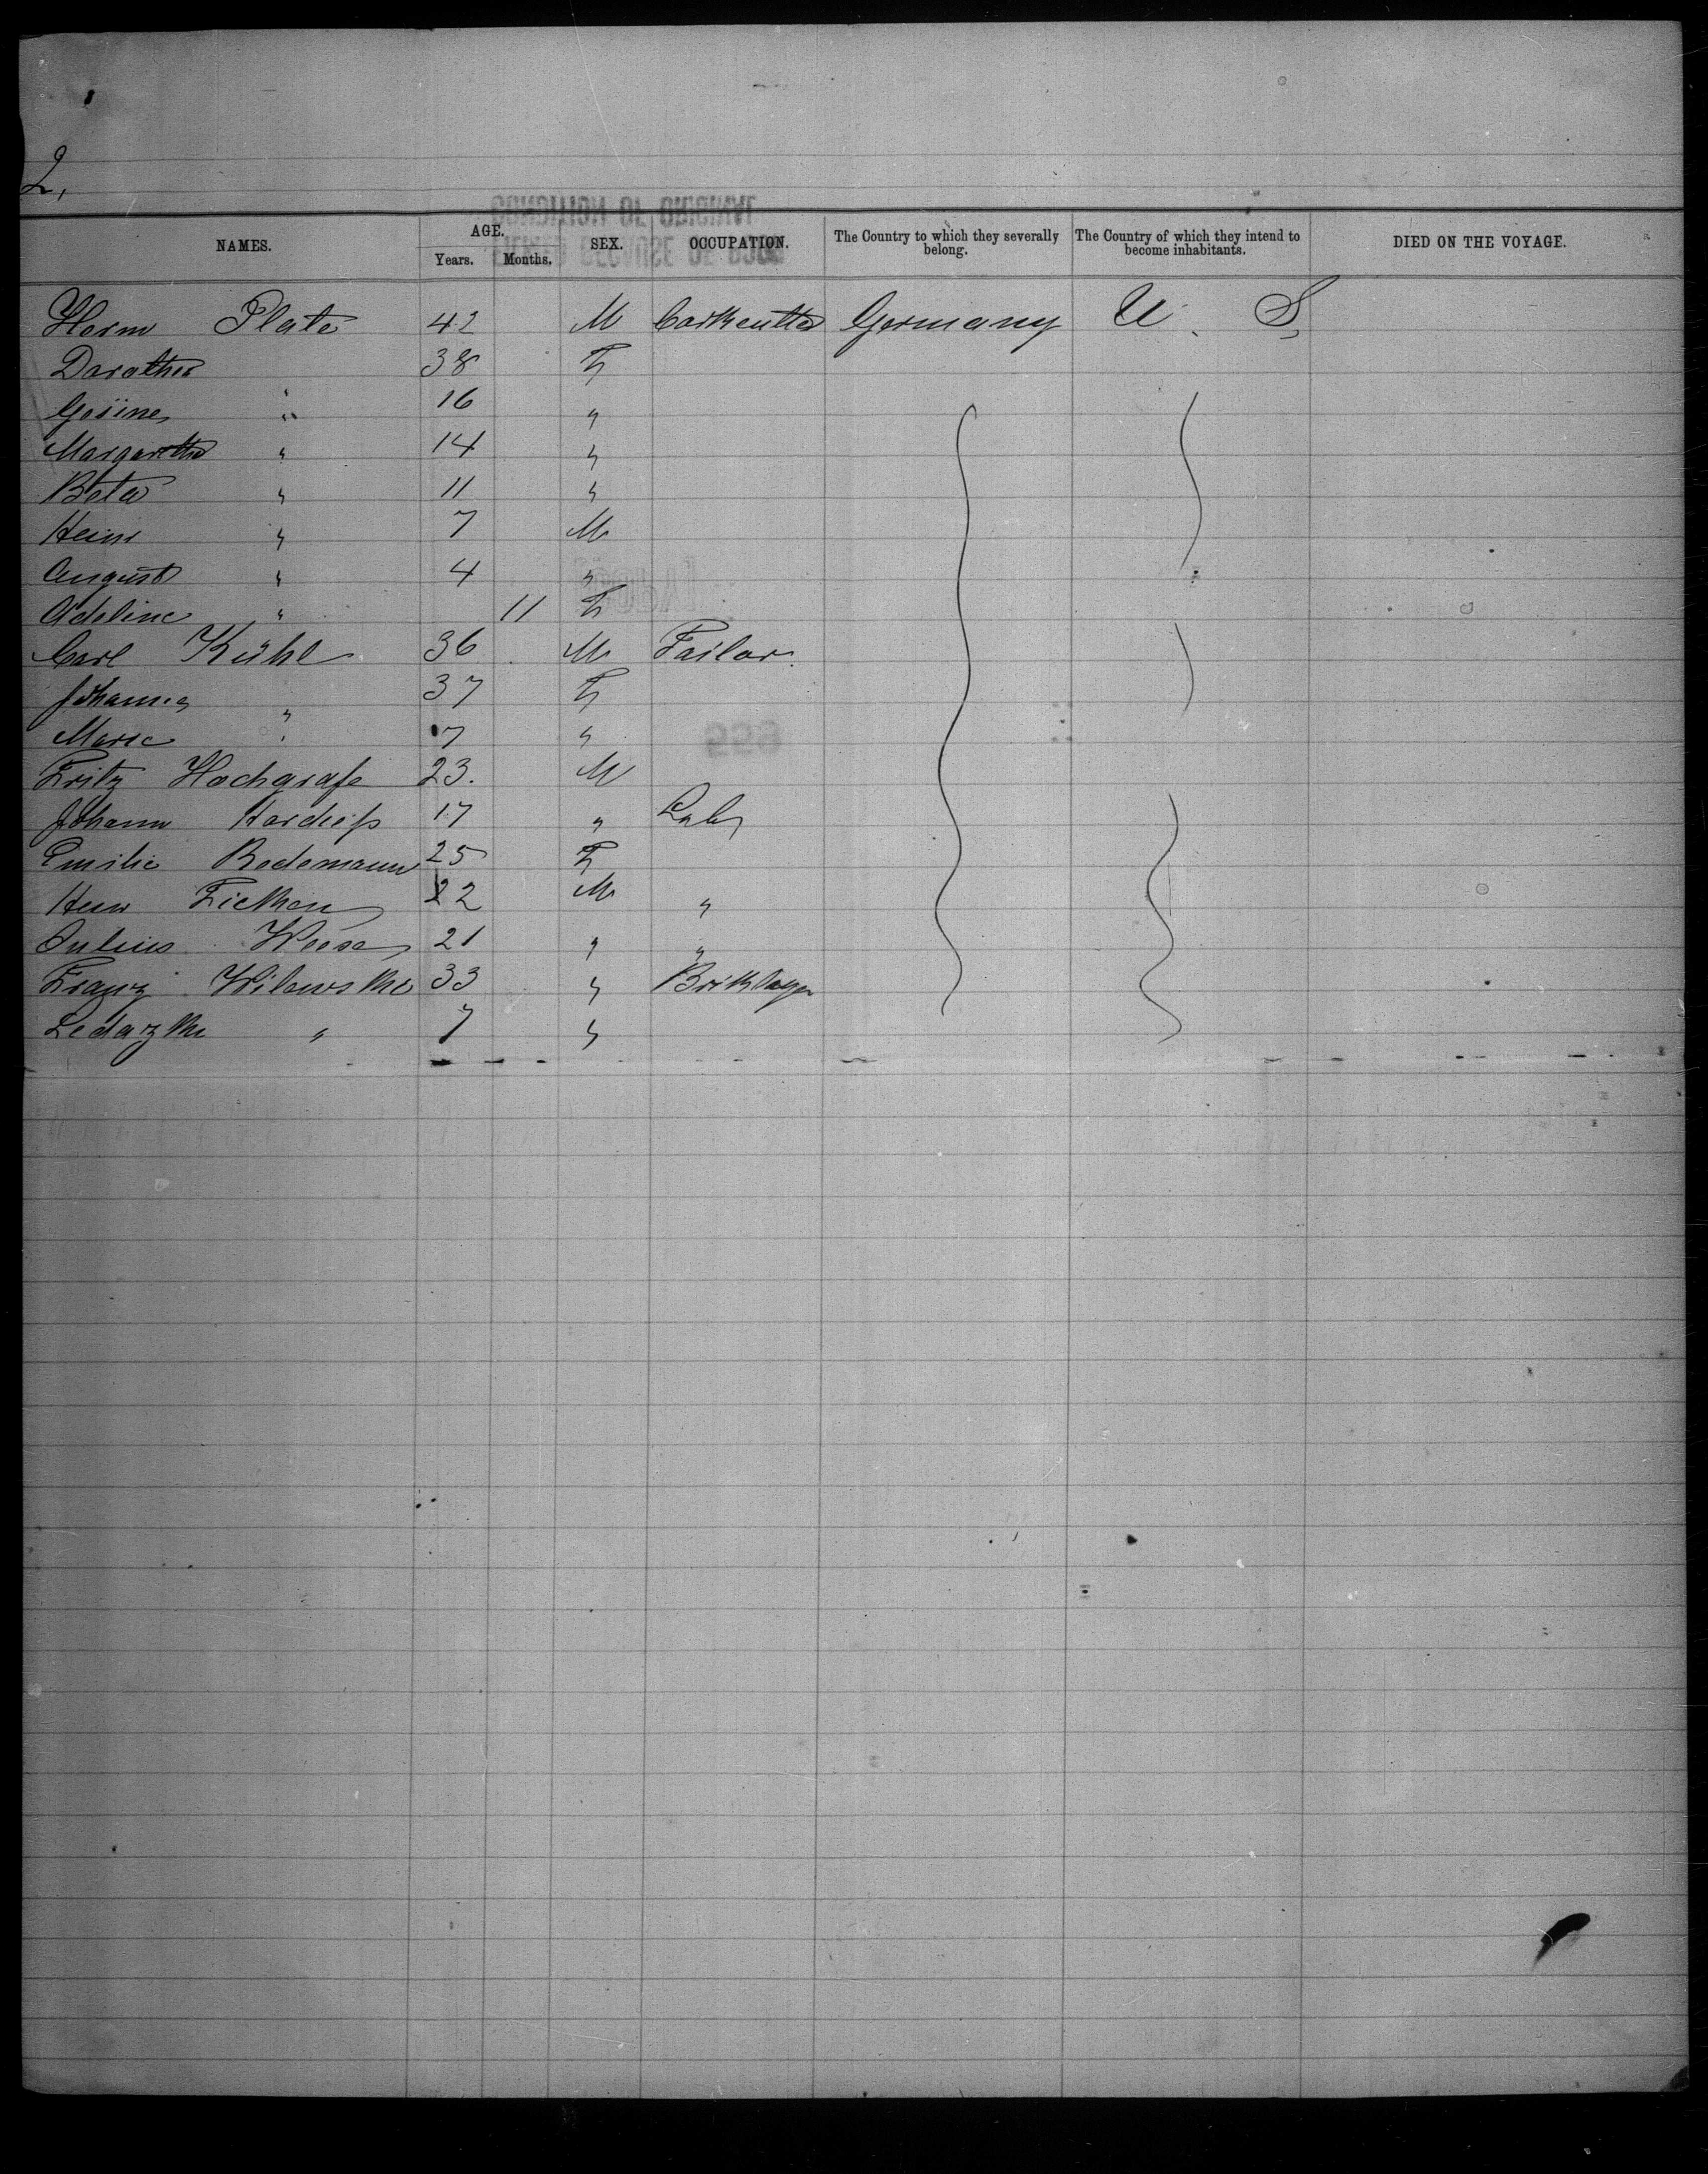 2.
NAMES. AGE. Years. Months. SEX. OCCUPATION. The Country to which they severally belong. The Country of which they intend to become inhabitants. DIED ON THE VOYAGE.
Herm Plate 42 M Germany U. S.
Darathea 38 F
Gesine " 16 "
Margaretha " 14 "
Beta " 11 "
Heinr " 7 M
August " 4 "
Adeline " 11 F
Carl Kühl 36 M Tailor.
Johanna " 37 F
Marie " 7 "
Fritz Hochgrafe 23. M
Johann 17 " Lab
Emilie Bedemann 25 F
Heinr Fietken 22 M "
Julius Weese 21 " "
Franz Wilewski 33 "
" 7 "